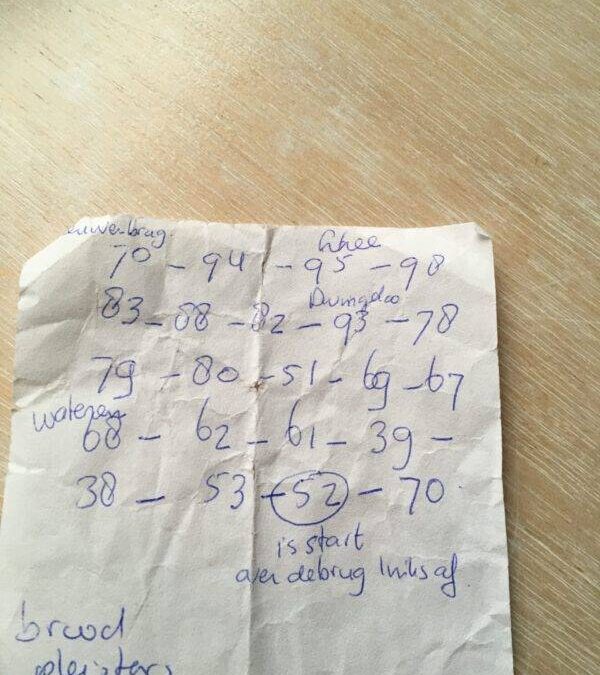 70 - 94 - 95 - 98
83 - 88 - 82 - 93 - 78
79 - 80 - 51 - 69 - 67
68 - 62 - 61 - 39 -
38 - 53 - 52 - 70
is start
over de brug links af
brood
pleisters